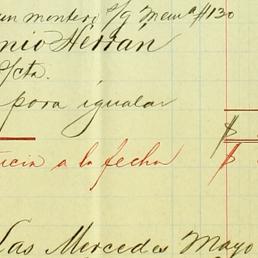 un monter; s/g Memª #130
nio Herrán
/cta.
para igualar $
icia a la fecha $
las Mercedes Mayo